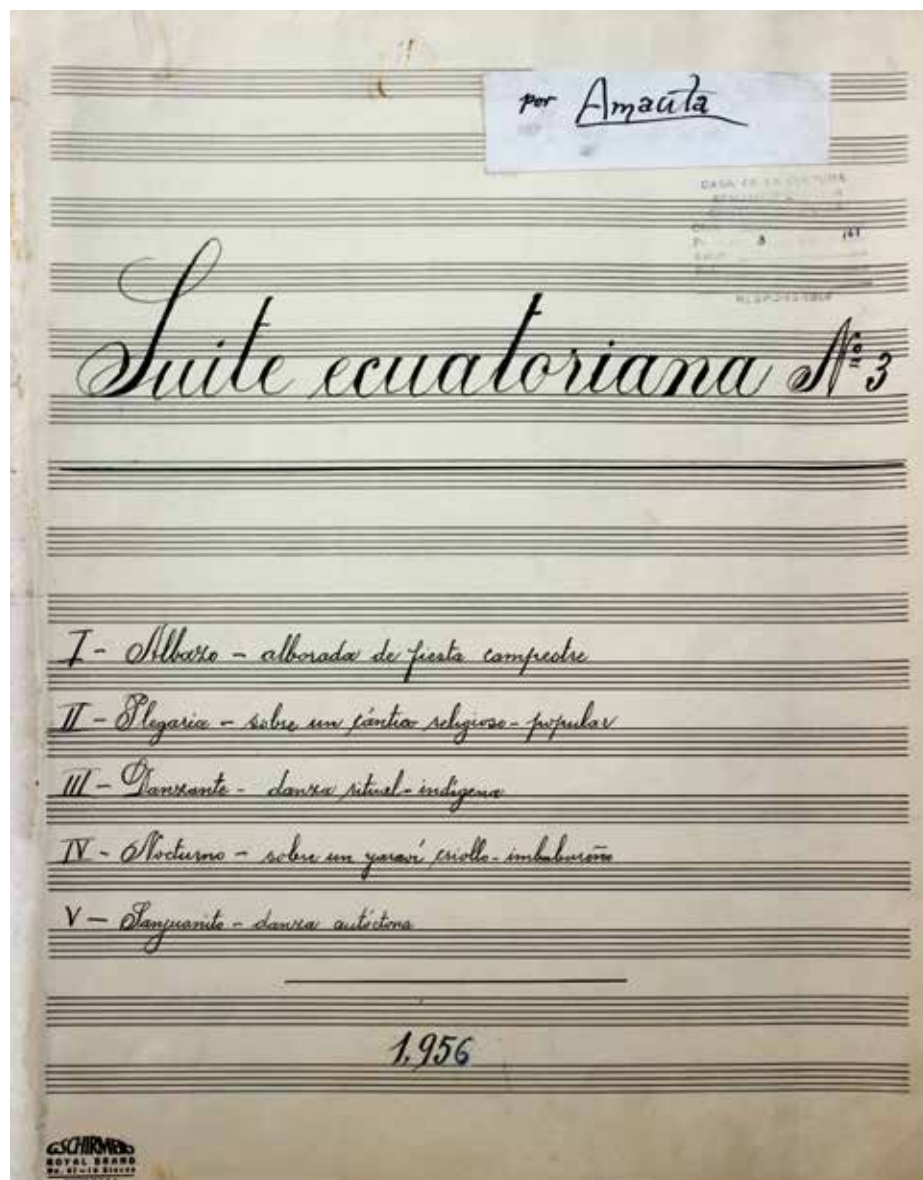 por Amauta
CASA DE LA CULTURA
3 161
RESPONSABLE
Suite ecuatoriana Nº 3
I - Albazo - alborada de fiesta campestre
II - Plegaria - sobre un cántico religioso-popular
III - Danzante - danza ritual-indígena
IV - Nocturno - sobre un yaraví criollo-imbabureño
V - Sanjuanito - danza autóctona
1,956
G.SCHIRMER
ROYAL BRAND